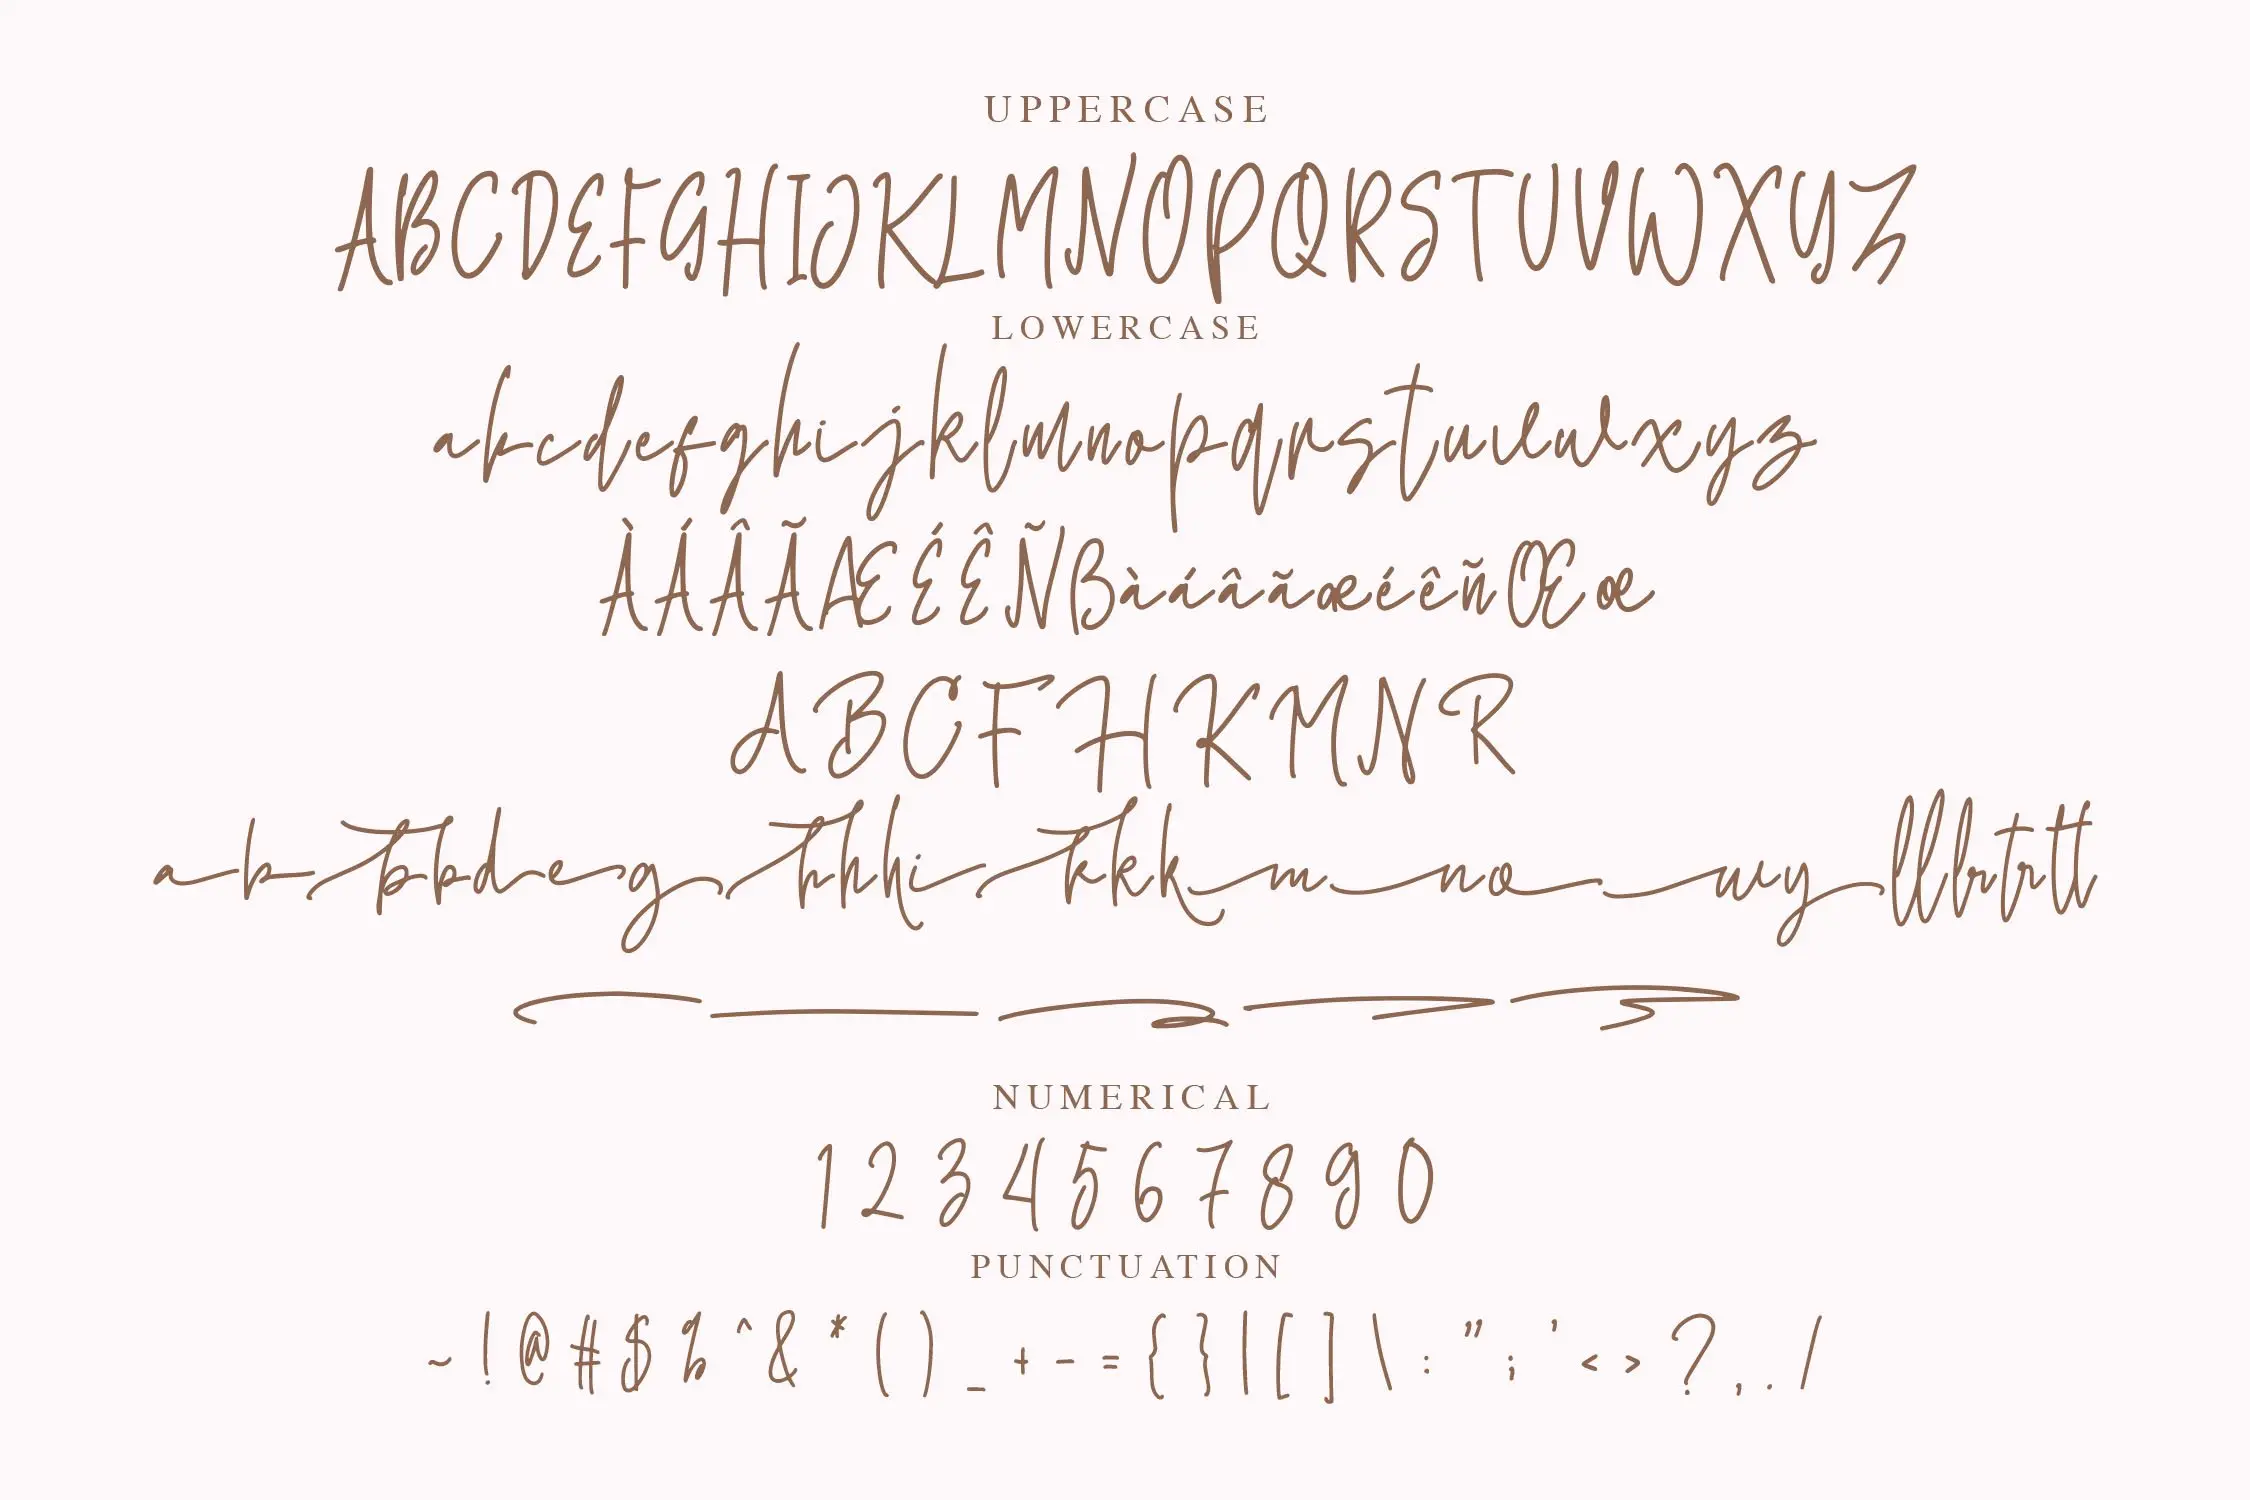 UPPERCASE
ABCDEFGHIJKLMNOPQRSTUVWXYZ
LOWERCASE
abcdefghijklmnopqrstuvwxyz
ÀÁÂÃÆÉÊÑBàáâãæéêñŒœ
ABCFHKMNR
abbbdeghhhikkkmnowyllbrtrtt
NUMERICAL
1234567890
PUNCTUATION
~!@#$%^&*()_+-={}|[]\:";'<>?,./